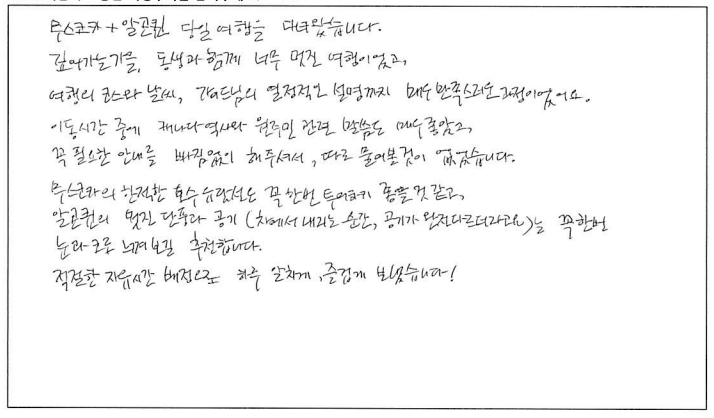 무스코카 + 알곤퀸 당일 여행을 다녀왔습니다.
깊어가는 가을, 동생과 함께 너무 멋진 여행이었고,
여행의 코스와 날씨, 가이드님의 열정적인 설명까지 매우 만족스러운 과정이었어요.
이동시간 중에 캐나다 역사와 원주민 관련 말씀도 매우 좋았고,
꼭 필요한 안내를 빠짐없이 해주셔서, 따로 물어볼것이 없었습니다.
무스코카의 한적한 호수 유람선도 꼭 한번 투어하기 좋을것 같고,
알곤퀸의 멋진 단풍과 공기 (차에서 내리는 순간, 공기가 완전 다르더라고요)는 꼭 한번
눈과 코로 느껴보길 추천합니다.
적절한 자유시간 배정으로 하루 알차게, 즐겁게 보냈습니다!